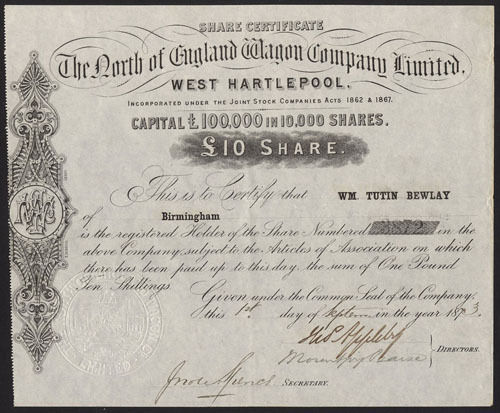 SHARE CERTIFICATE
The North of England Wagon Company Limited,
WEST HARTLEPOOL.
INCORPORATED UNDER THE JOINT STOCK COMPANIES ACTS 1862 & 1867.
CAPITAL £100,000 IN 10,000 SHARES.
£10 SHARE.
This is to Certify that WM. TUTIN BEWLAY
of Birmingham
is the registered Holder of the Share Numbered in the
above Company, subject to the Articles of Association on which
there has been paid up to this day, the sum of One Pound
Ten Shillings.
Given under the Common Seal of the Company,
this 1st day of Septem in the year 1873
Thos Appleby
DIRECTORS.
SECRETARY.
LIMITED